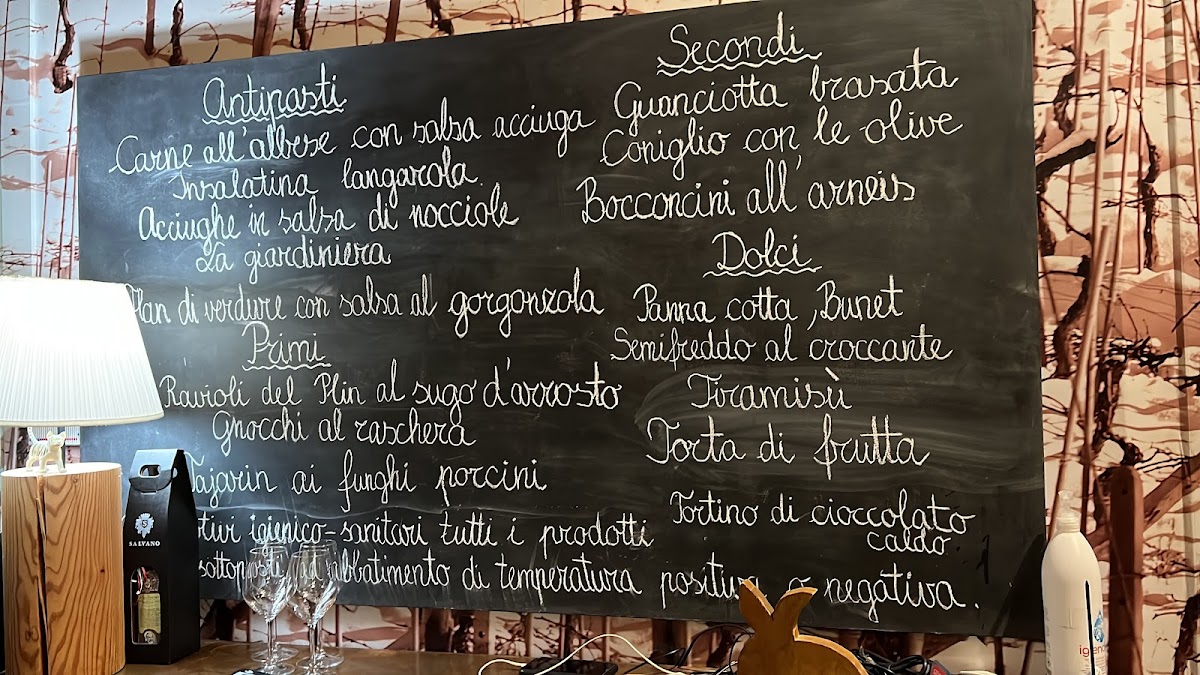 Antipasti
Carne all'albese con salsa acciuga
Insalatina langarola
Acciughe in salsa di nocciole
La giardiniera
Flan di verdure con salsa al gorgonzola
Primi
Ravioli del Plin al sugo d'arrosto
Gnocchi al raschera
Tajarin ai funghi porcini
Secondi
Guanciotta brasata
Coniglio con le olive
Bocconcini all'arneis
Dolci
Panna cotta, Bunet
Semifreddo al croccante
Tiramisù
Torta di frutta
Tortino di cioccolato
caldo
igienico-sanitari tutti i prodotti
sottoposti ad abbattimento di temperatura positiva o negativa.
S
SALVANO